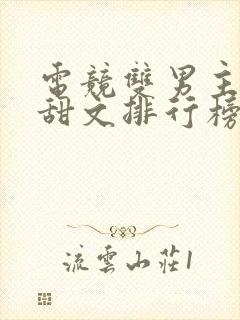 電競雙男主
甜文排行榜
流雲山莊1